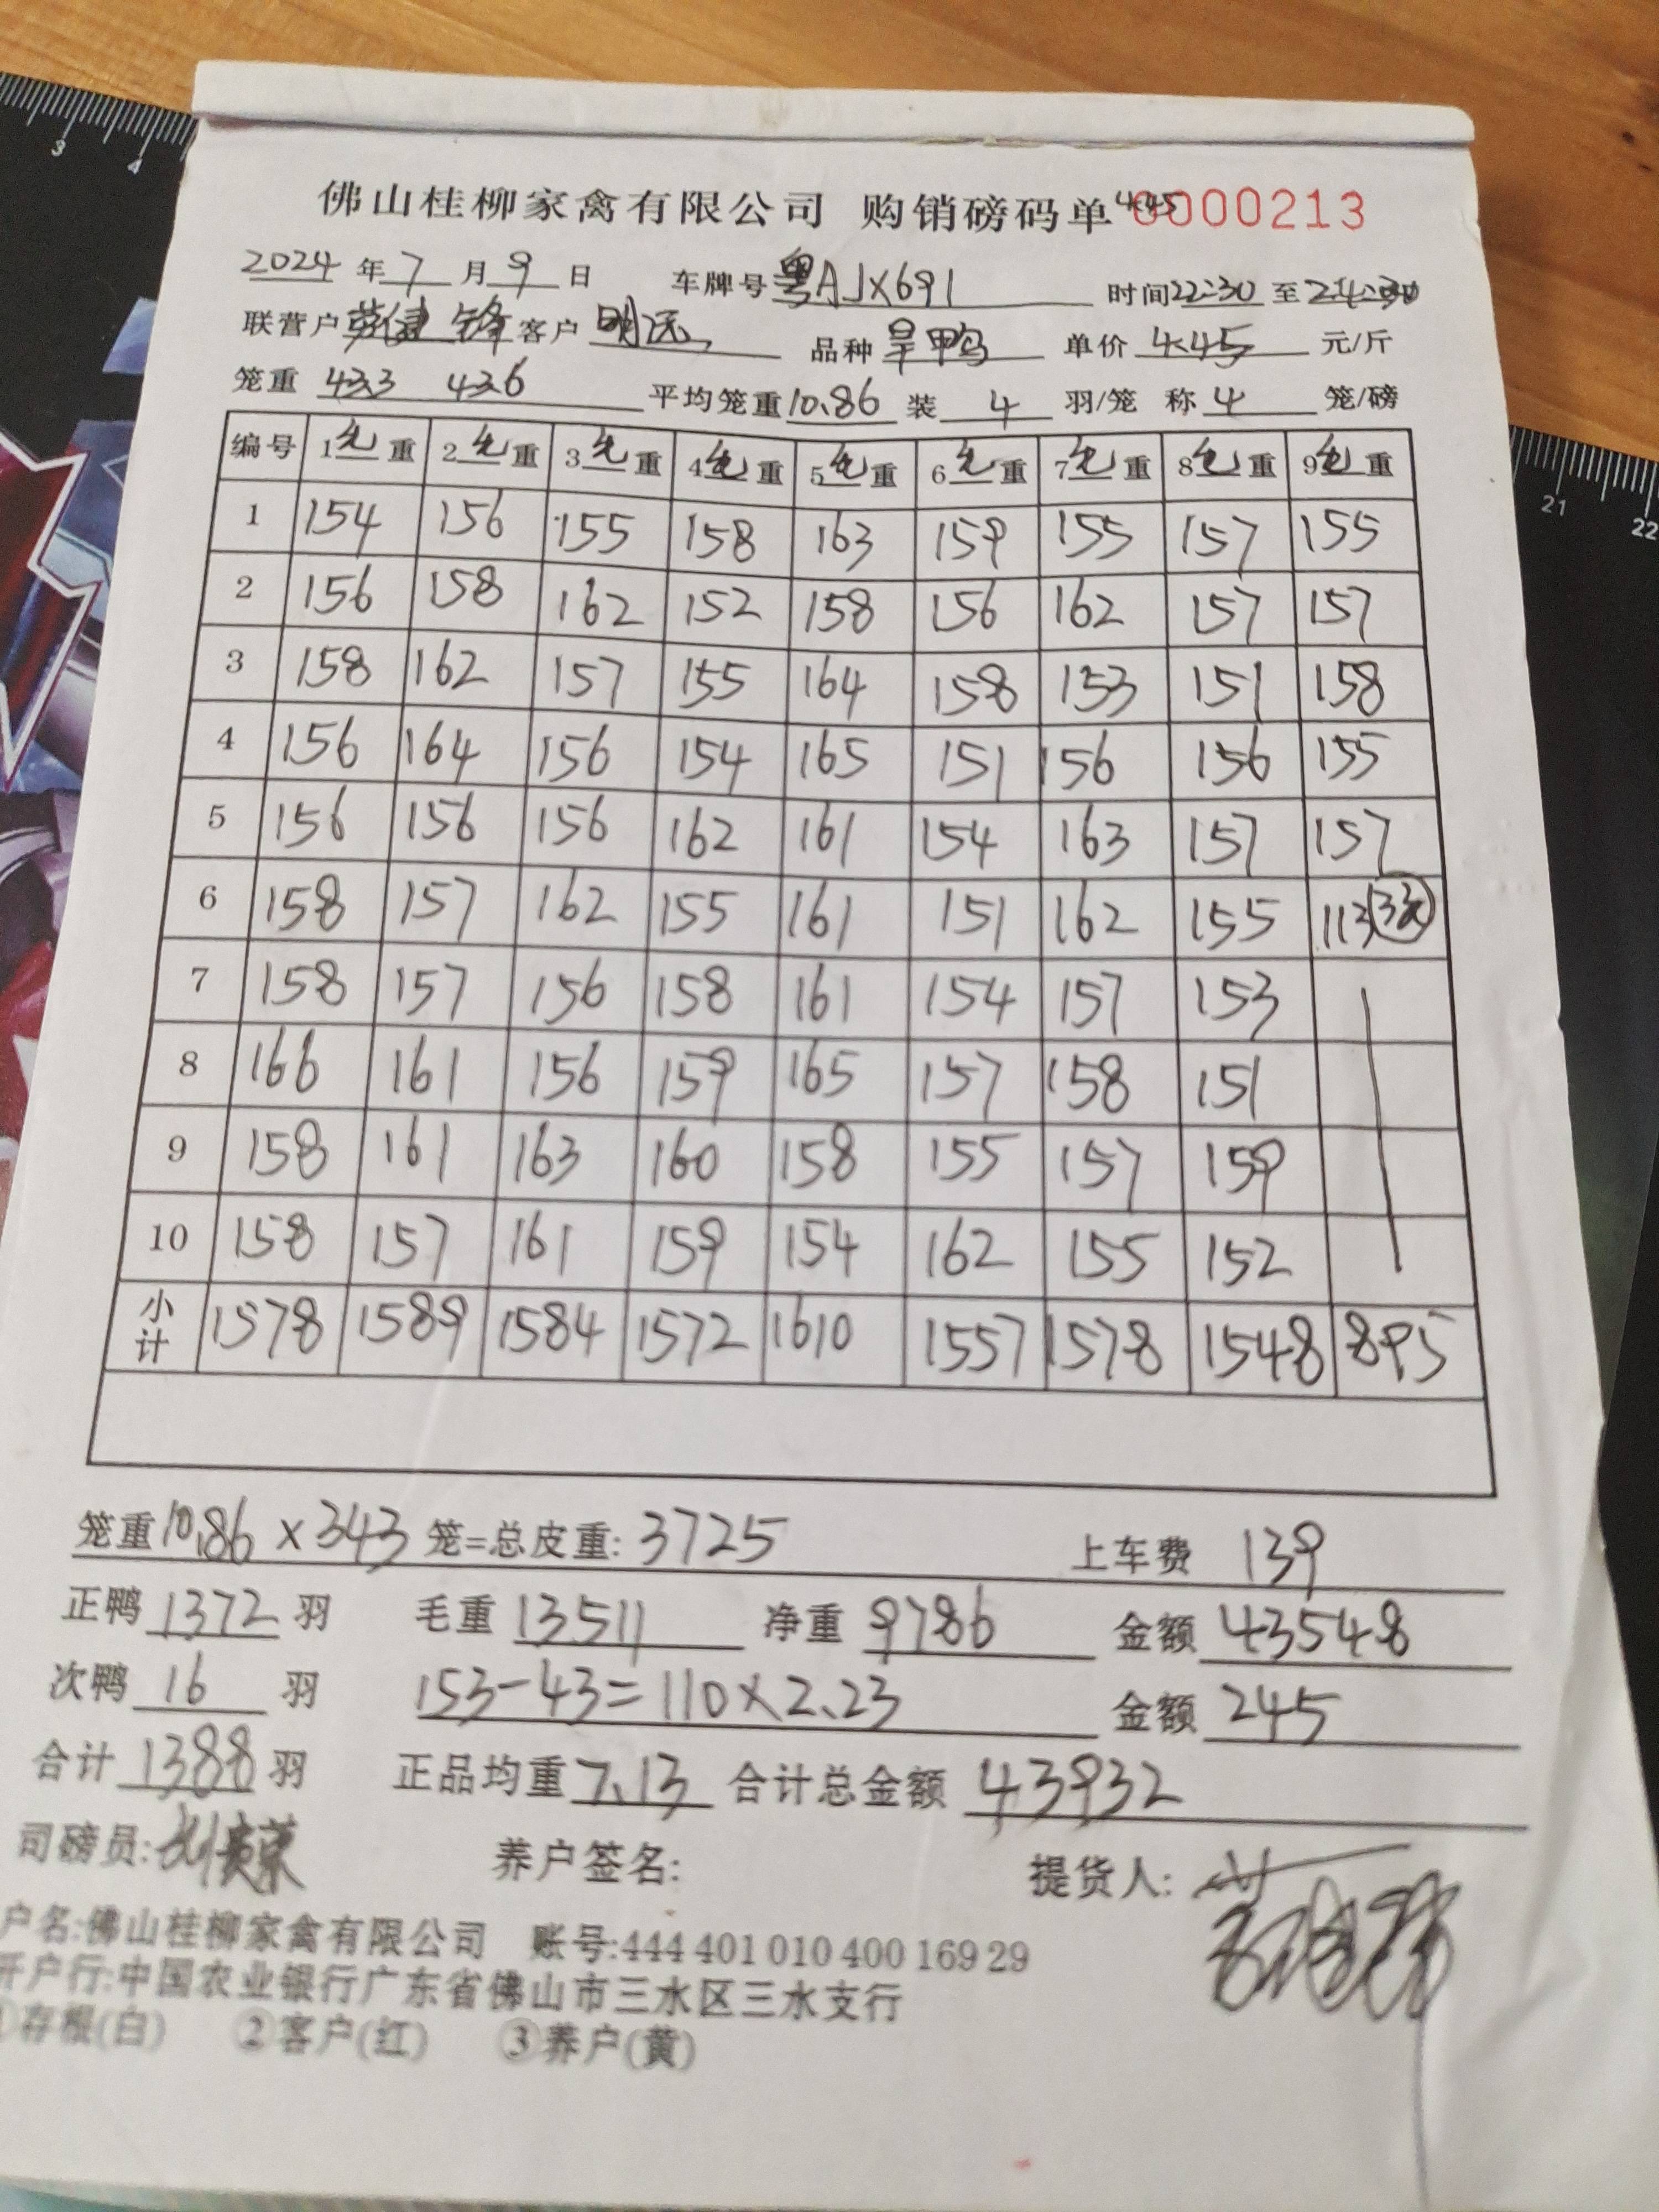 佛山桂柳家禽有限公司 购销磅码单 0000213
4.45
2024年7月9日 车牌号粤AJX691 时间22:30至24:30
联营户 锋 客户明远 品种旱鸭 单价4.45元/斤
笼重 433 436 平均笼重10.86 装4羽/笼 称4笼/磅
编号 1毛重 2毛重 3毛重 4毛重 5毛重 6毛重 7毛重 8毛重 9毛重
1 154 156 155 158 163 159 155 157 155
2 156 158 162 152 158 156 162 157 157
3 158 162 157 155 164 158 153 151 158
4 156 164 156 154 165 151 156 156 155
5 156 156 156 162 161 154 163 157 157
6 158 157 162 155 161 151 162 155 113 3笼
7 158 157 156 158 161 154 157 153
8 166 161 156 159 165 157 158 151
9 158 161 163 160 158 155 157 159
10 158 157 161 159 154 162 155 152
小计 1578 1589 1584 1572 1610 1557 1578 1548 895
笼重10.86×343笼=总皮重:3725 上车费 139
正鸭1372羽 毛重13511 净重9786 金额43548
次鸭16羽 153-43=110×2.23 金额245
合计1388羽 正品均重7.13 合计总金额43932
司磅员: 养户签名: 提货人:
户名:佛山桂柳家禽有限公司 账号:444 401 010 400 169 29
开户行:中国农业银行广东省佛山市三水区三水支行
①存根(白) ②客户(红) ③养户(黄)
3 4
21 22